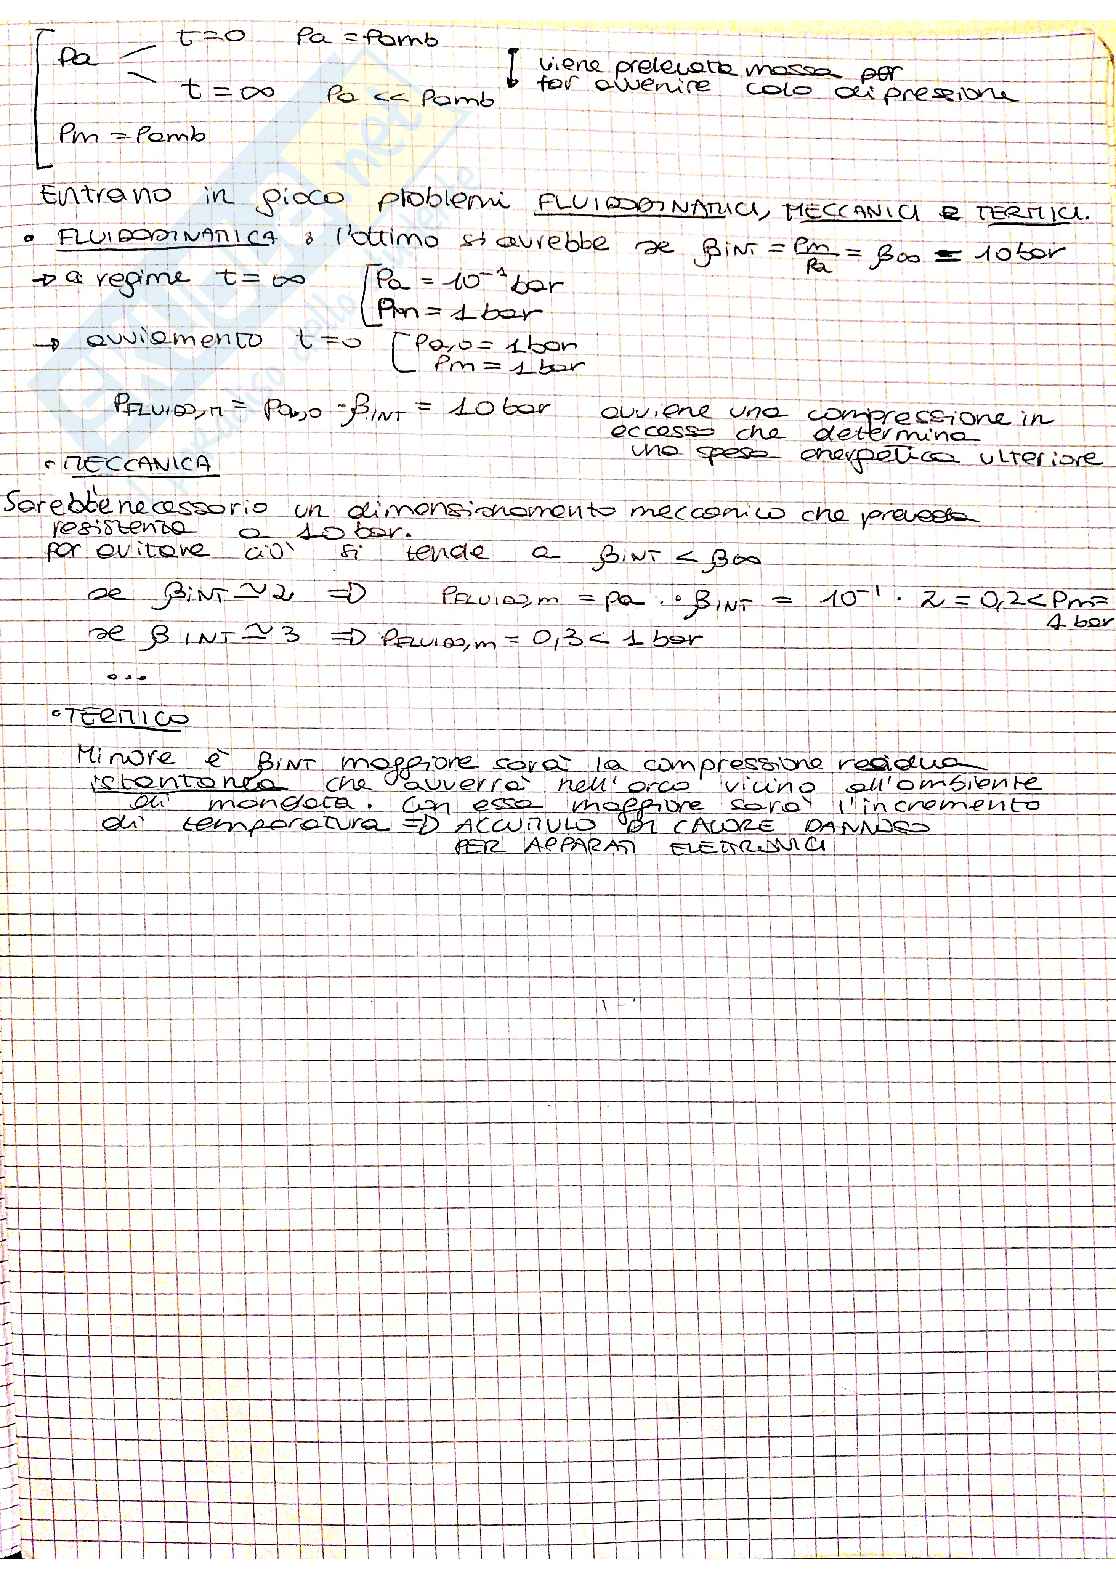 t=0 Pa = Pamb
Pa
viene prelevata massa per
far avvenire calo di pressione
t=∞ Pa << Pamb
Pm = Pamb
Entrano in gioco problemi FLUIDODINAMICI, MECCANICI E TERMICI.
• FLUIDODINAMICA : l'ottimo si avrebbe se βINT = Pm/Pa = β∞ = 10 bar
→ a regime t=∞ Pa = 10⁻¹ bar
Pm = 1 bar
→ avviamento t=0 Pa,0 = 1 bar
Pm = 1 bar
PFLUIDO,M = Pa,0 · βINT = 10 bar avviene una compressione in
eccesso che determina
una spesa energetica ulteriore
• MECCANICA
Sarebbe necessario un dimensionamento meccanico che preveda
resistenza a 10 bar.
Per evitare ciò si tende a βINT < β∞
se βINT ≃ 2 => PFLUIDO,m = Pa · βINT = 10⁻¹ · 2 = 0,2 < Pm =
1 bar
se βINT ≃ 3 => PFLUIDO,m = 0,3 < 1 bar
...
• TERMICO
Minore è βINT maggiore sarà la compressione residua
istantanea che avverrà nell'arco vicino all'ambiente
di mandata. Con essa maggiore sarà l'incremento
di temperatura => ACCUMULO DI CALORE DANNOSO
PER APPARATI ELETTRONICI